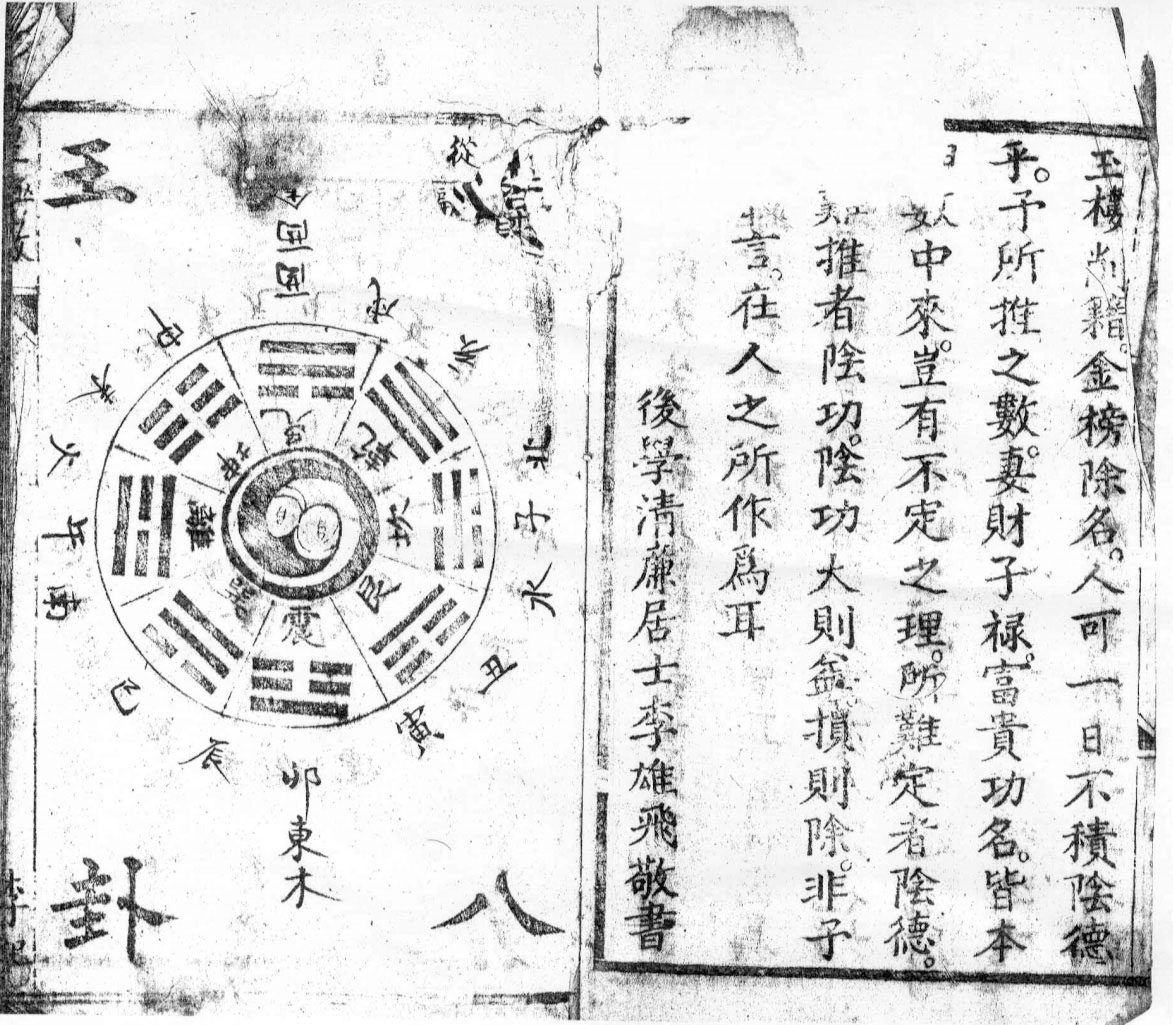 玉樓削籍。金榜除名。人可一日不積陰德
乎。予所推之數。妻財子禄。富貴功名。皆本
中來。豈有不定之理。所難定者陰德。
推者陰功。陰功大則益。損則除。非子
言。在人之所作爲耳
後學清廉居士李雄飛敬書
從
師
王
八
卦
金
西
酉
戌
亥
北
子
水
丑
寅
卯
東
木
辰
巳
南
午
火
未
申
兌
乾
坎
艮
震
巽
離
坤